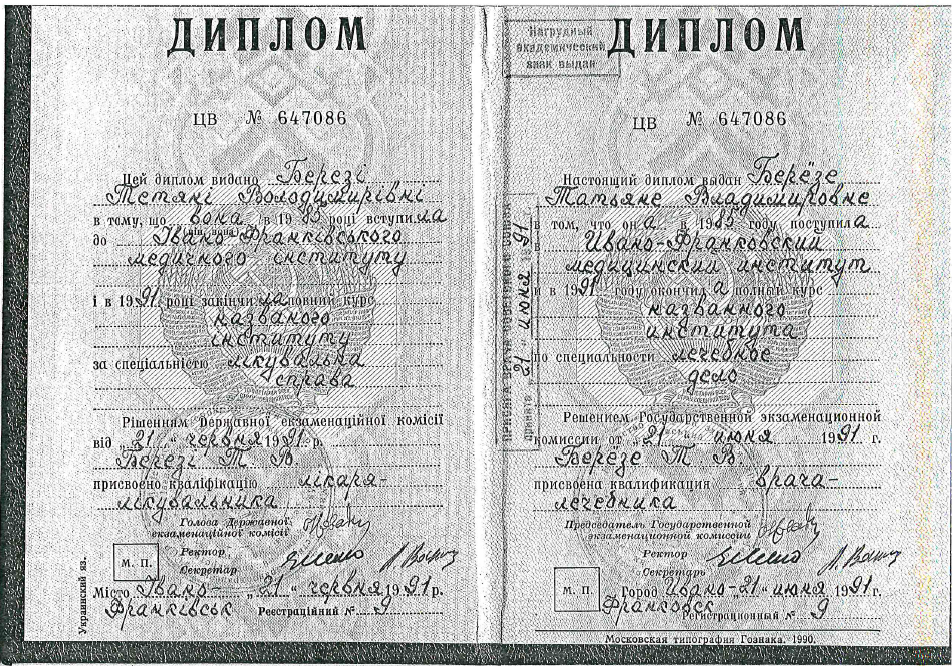 ДИПЛОМ
ЦВ № 647086
Цей диплом видано Березі
Тетяні Володимирівні
в тому, що вона в 1985 році вступила
до Івано-Франківського
медичного інституту
і в 1991 році закінчила повний курс
названого
інституту
за спеціальністю лікувальна
справа
Рішенням Державної екзаменаційної комісії
від „21“ червня 1991 р.
Березі Т В
присвоєно кваліфікацію лікаря-
лікувальника
Голова Державної
екзаменаційної комісії
Ректор
М. П.
Секретар
Місто Івано- „21“ червня 1991 р.
Франківськ Реєстраційний № 9
Украинский яз.
Нагрудный
академический
знак выдан
ДИПЛОМ
ЦВ № 647086
Настоящий диплом выдан Берёзе
Татьяне Владимировне
в том, что она в 1985 году поступила
в Ивано-Франковский
медицинский институт
и в 1991 году окончила полный курс
названного
института
по специальности лечебное
дело
Решением Государственной экзаменационной
комиссии от „21“ июня 1991 г.
Берёзе Т В
присвоена квалификация врача-
лечебника
Председатель Государственной
экзаменационной комиссии
Ректор
Секретарь
М. П.
Город Ивано- 21 июня 1991 г.
Франковск Регистрационный № 9
Московская типография Гознака. 1990.
ПРИСЯГА ВРАЧА СОВЕТСКОГО СОЮЗА
принята „21“ июня 1991